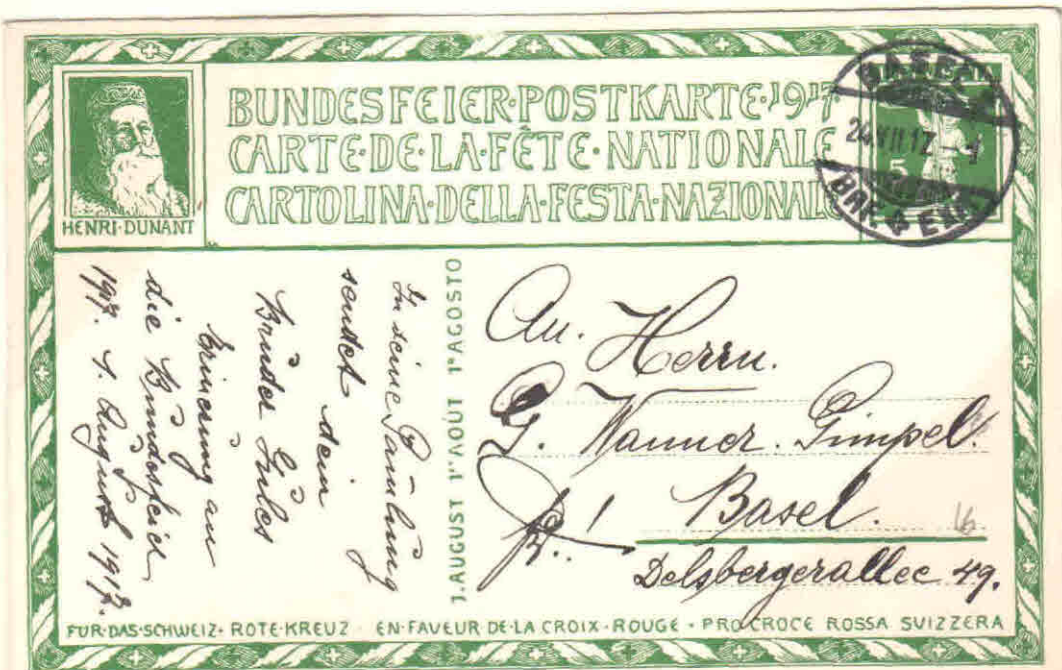 BUNDESFEIER·POSTKARTE·1917
CARTE·DE·LA·FÊTE·NATIONALE
CARTOLINA·DELLA·FESTA·NAZIONALE
HENRI·DUNANT
BASEL
24.VII.17.-1
5
1.AUGUST 1ER AOÛT 1º AGOSTO
In deine Samlung
sendet dein
Bruder Jules
Erinerung an
die Bundesfeier
1917. 1. August 1917.
An. Herrn.
G. Wanner. Gimpel.
Basel.
16
Delsbergerallee 49.
FÜR·DAS·SCHWEIZ·ROTE·KREUZ · EN·FAVEUR·DE·LA CROIX·ROUGE · PRO CROCE ROSSA SVIZZERA